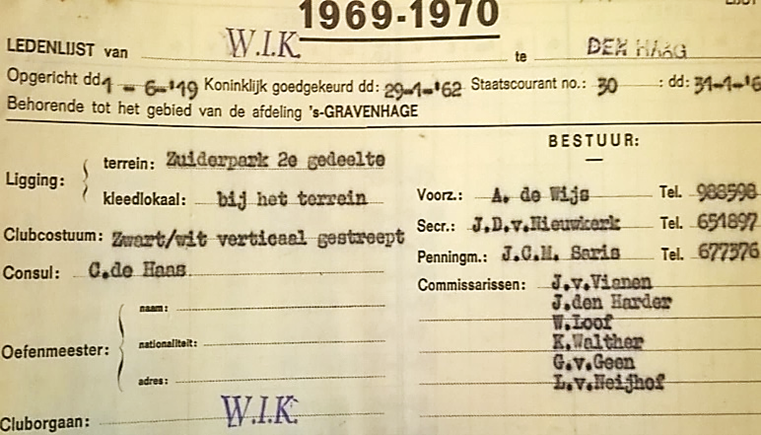 1969-1970
LEDENLIJST van W.I.K. te DEN HAAG
Opgericht dd 1 - 6-'19 Koninklijk goedgekeurd dd: 29-1-'62 Staatscourant no.: 30 : dd: 31-1-'6
Behorende tot het gebied van de afdeling 's-GRAVENHAGE
Ligging: terrein: Zuiderpark 2e gedeelte
kleedlokaal: bij het terrein
Clubcostuum: Zwart/wit verticaal gestreept
Consul: C.de Haas
Oefenmeester: naam:
nationaliteit:
adres:
Cluborgaan: W.I.K.
BESTUUR:
Voorz.: A. de Wijs Tel. 988598
Secr.: J.D.v.Nieuwkerk Tel. 651897
Penningm.: J.C.M. Saris Tel. 677376
Commissarissen: J.v.Vianen
J.den Harder
W.Loof
K.Walther
G.v.Geen
L.v.Neijhof